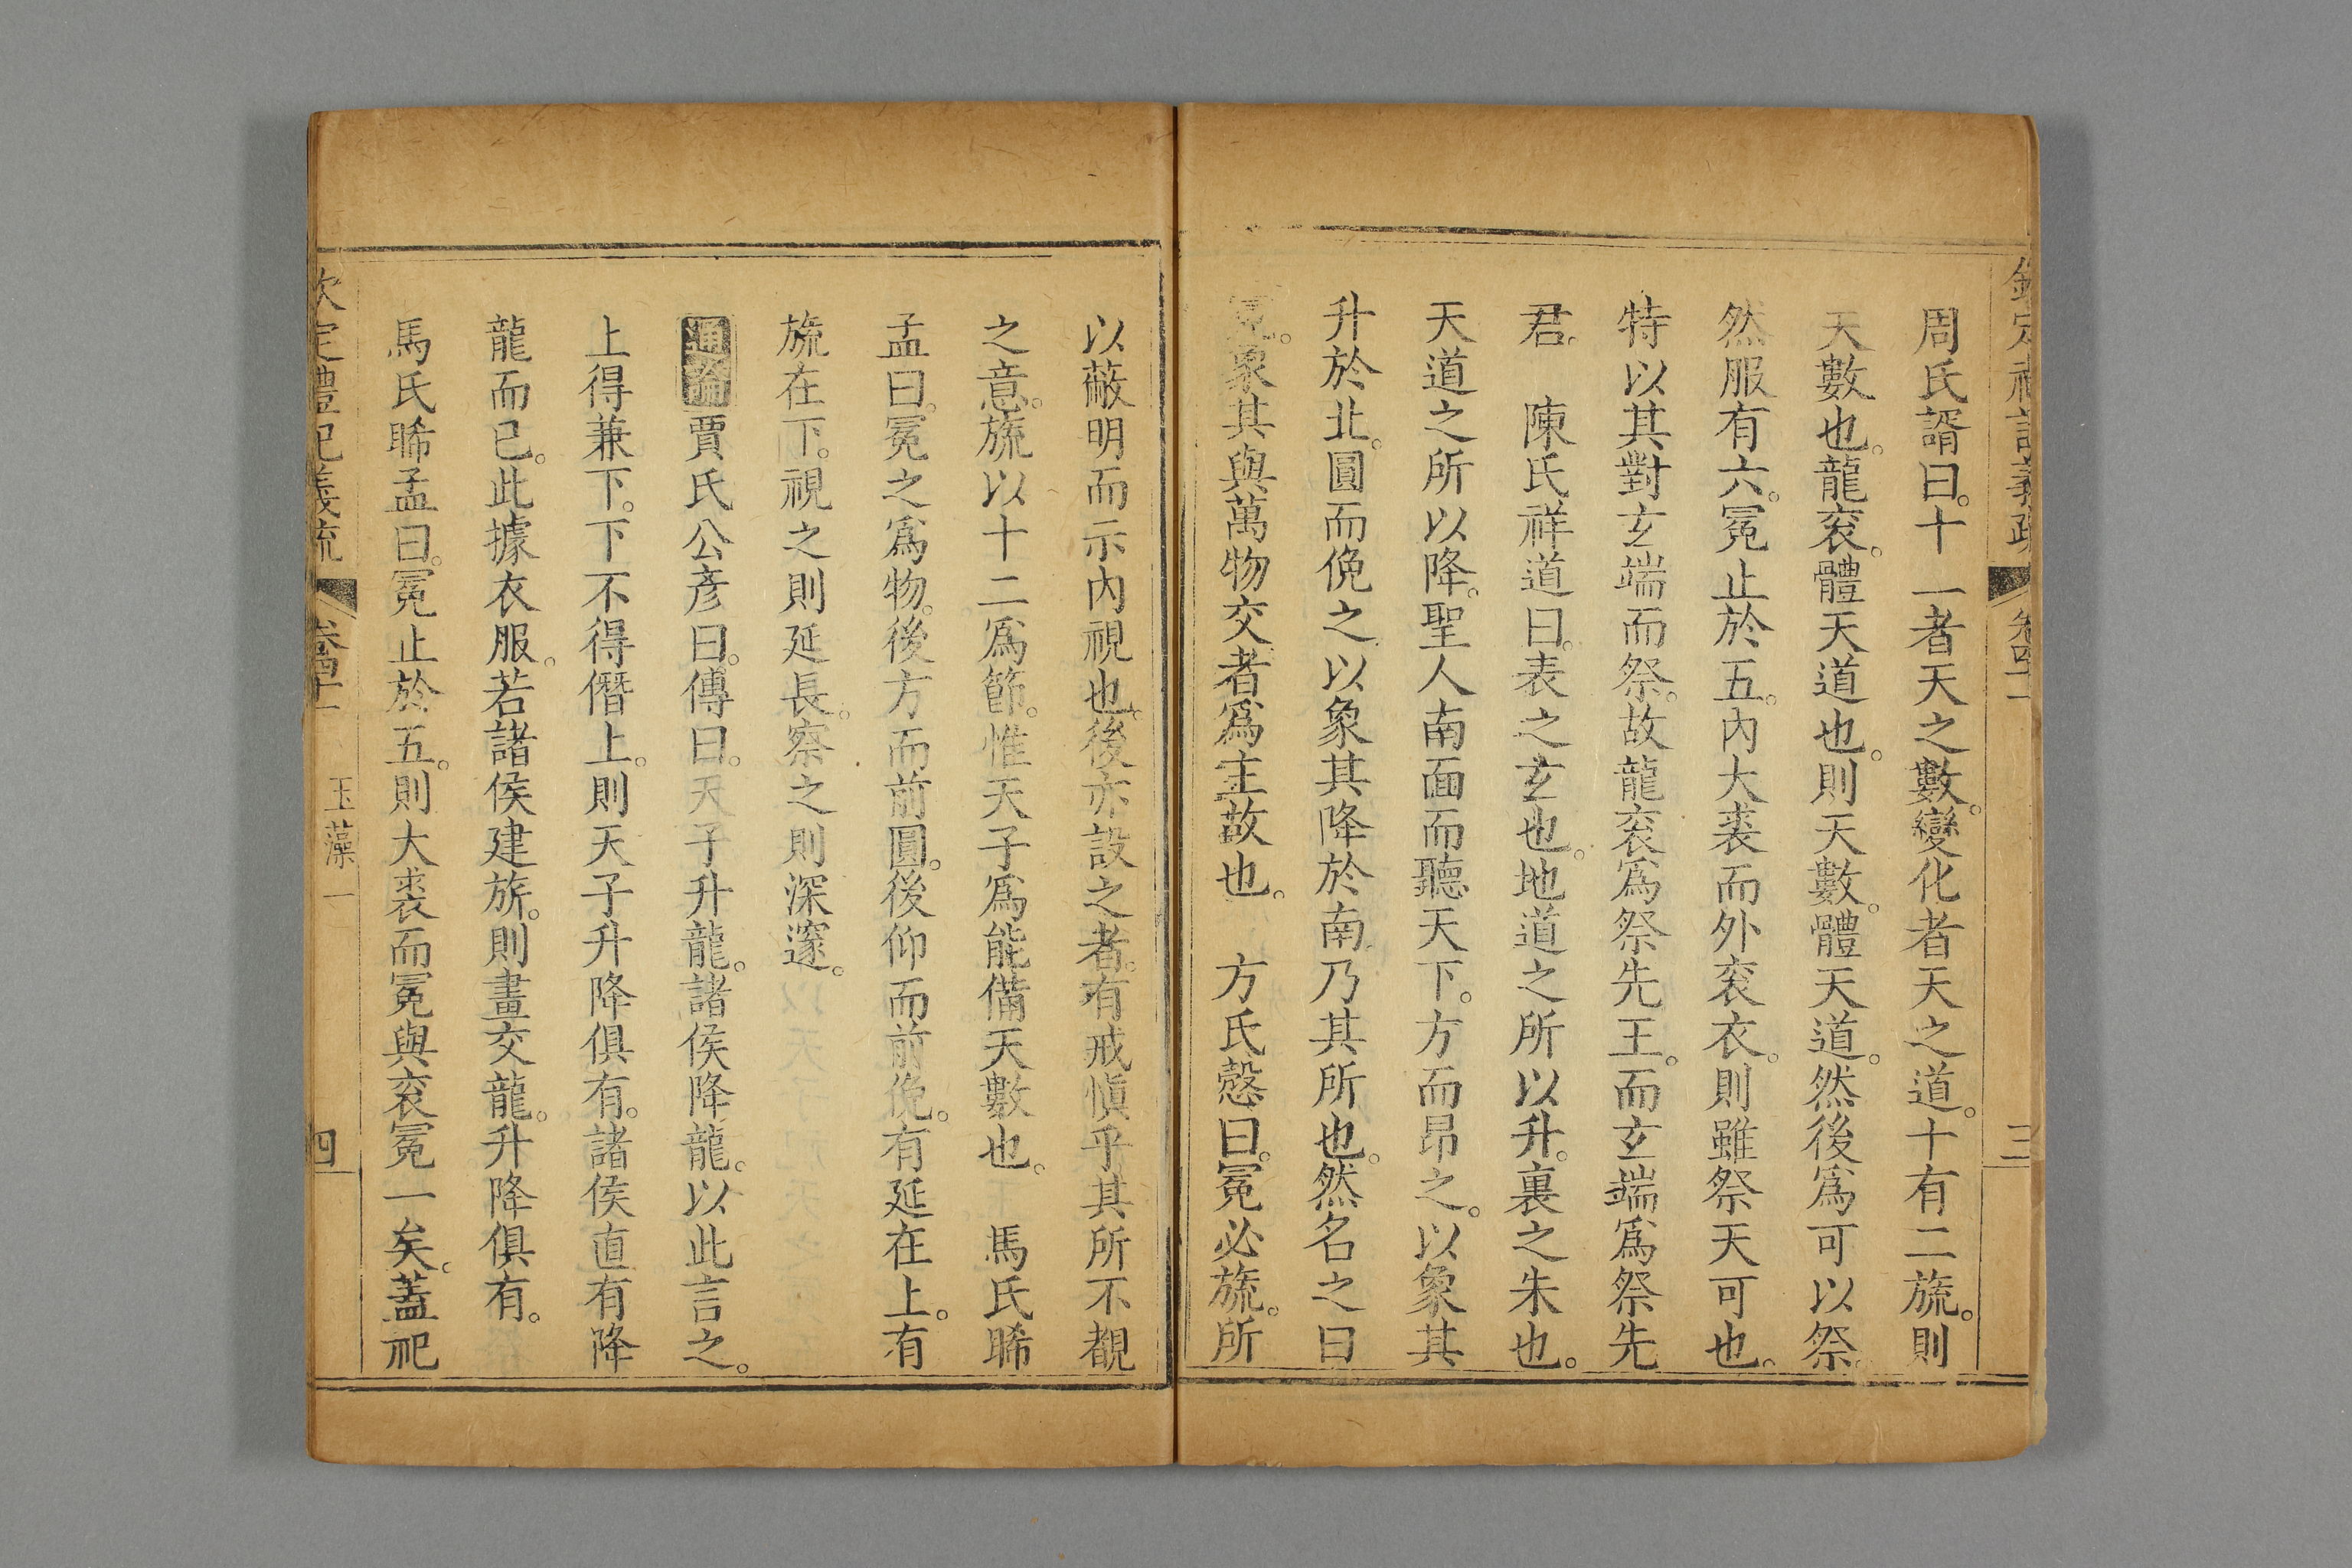 欽定禮記義疏 卷四十一 三
周氏諝曰。十一者天之數。變化者天之道。十有二旒。則
天數也。龍衮。體天道也。則天數。體天道。然後爲可以祭。
然服有六。冕止於五。内大裘而外衮衣。則雖祭天可也。
特以其對玄端而祭。故龍衮爲祭先王。而玄端爲祭先
君。 陳氏祥道曰。表之玄也。地道之所以升。裏之朱也。
天道之所以降。聖人南面而聽天下。方而昂之。以象其
升於北。圓而俛之。以象其降於南。乃其所也。然名之曰
冕。象其與萬物交者爲主故也。 方氏慤曰。冕必旒。所
以蔽明而示内視也。後亦設之者。有戒愼乎其所不覩
之意。旒以十二爲節。惟天子爲能備天數也。 馬氏晞
孟曰。冕之爲物。後方而前圓。後仰而前俛。有延在上。有
旒在下。視之則延長。察之則深邃。
通論賈氏公彦曰。傳曰。天子升龍。諸侯降龍。以此言之。
上得兼下。下不得僭上。則天子升降俱有。諸侯直有降
龍而已。此據衣服。若諸侯建旂。則畫交龍。升降俱有。
馬氏晞孟曰。冕止於五。則大裘而冕與衮冕一矣。蓋祀
欽定禮記義疏 卷四十一 玉藻一 四